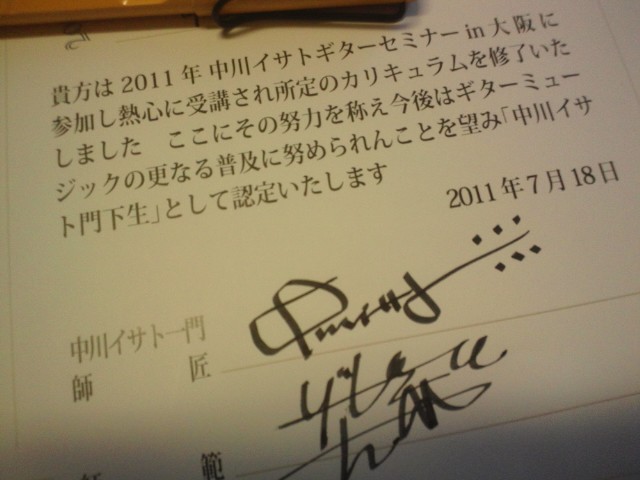 貴方は2011年 中川イサトギターセミナー in 大阪に
参加し熱心に受講され所定のカリキュラムを修了いた
しました　ここにその努力を称え今後はギターミュー
ジックの更なる普及に努められんことを望み「中川イサ
ト門下生」として認定いたします
2011年7月18日
中川イサト一門
師匠
範